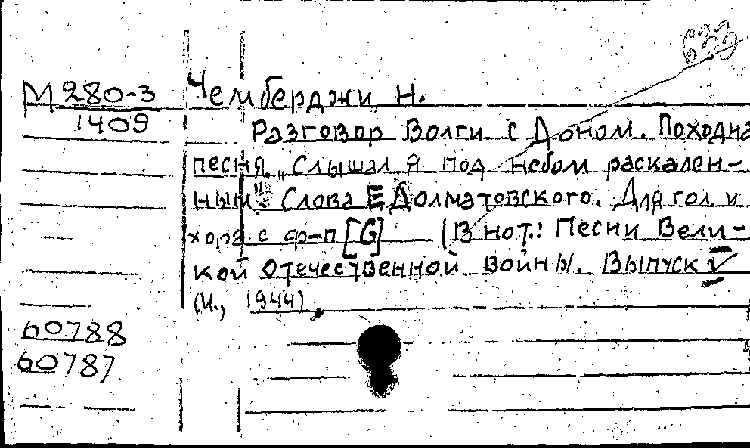 М 280-3
1409
Чемберджи Н.
Разговор Волги с Доном. Походна
песня. „Слышал я под небом раскален-
ным“. Слова Е Долматовского. Для гол. и
хора с ф-п [G] (В нот.: Песни Вели-
кой Отечественной войны. Выпуск V
(М., 1944).
60788
60787